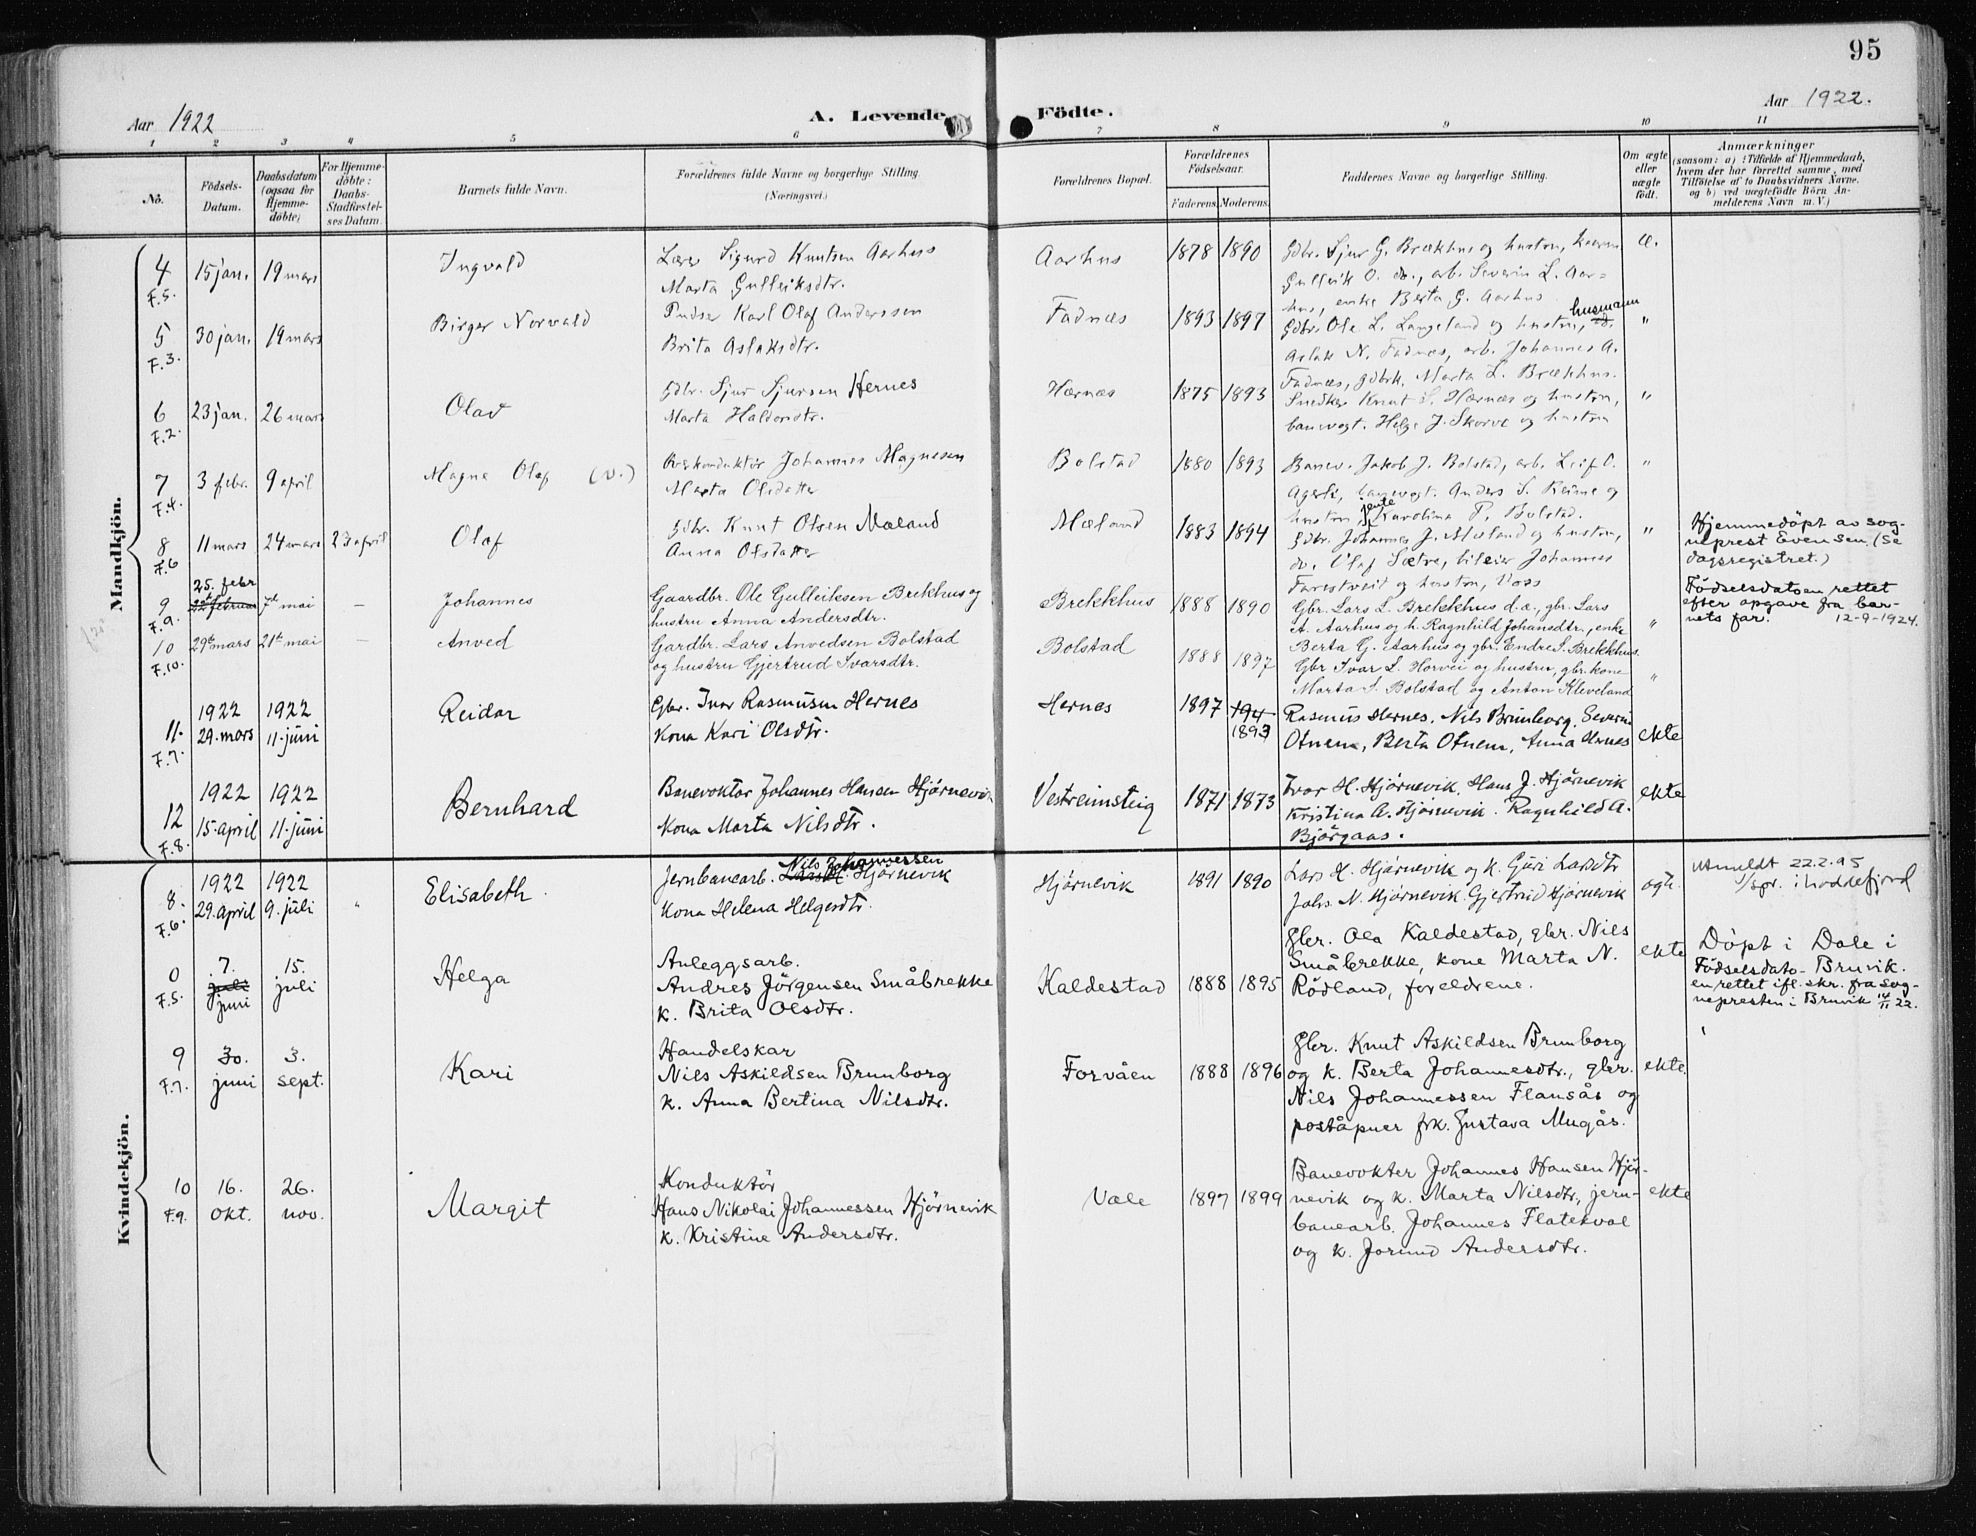 95
Aar 1922
A. Levende Födte.
Aar 1922.
1 2 3 4 5 6 7 8 9 10 11
No.
Födsels-
Datum.
Daabsdatum
(ogsaa for
Hjemme-
döbte)
For Hjemme-
döbte:
Daabs-
Stadfæstel-
ses Datum.
Barnets fulde Navn.
Forældrenes fulde Navne og borgerlige Stilling.
(Næringsvei.)
Forældrenes Bopæl.
Forældrenes
Födselsaar.
Faderens. Moderens.
Faddernes Navne og borgerlige Stilling.
Om ægte
eller
uægte
födt.
Anmærkninger
(saasom: a) i Tilfælde af Hjemmedaab,
hvem der har forrettet samme, med
Tilföielse af to Daabsvidners Navne.
og b) ved uægtefödte Börn An-
melderens Navn m. V.)
Mandkjön.
4
F.5.
15 jan. 19 mars
Ingvald
Lærer Sigurd Knutsen Aarhus
Marta Gulleiksdtr.
Aarhus
1878 1890
Gdbr. Sjur G. Brækhus og hustru,
Gulleik O. do., arb. Severin L. Aar-
hus, enke Berta G. Aarhus
æ.
5
F.3.
30 jan. 19 mars
Birger Norvald
Pudser Karl Olaf Anderssen
Brita Aslaksdtr.
Fadnæs
1893 1897
Gdbr. Ole L. Langeland og hustru, husmann
Aslak N. Fadnæs, arb. Johannes A.
Fadnæs, gdbrk. Marta L. Brækhus.
"
6
F.2.
23 jan. 26 mars
Olav
Gdbr. Sjur Sjursen Hernes
Marta Haldorsdtr.
Hærnæs
1875 1893
Snedker Knut S. Hærnæs og hustru,
banevogt. Helge J. Skorve og hustru
"
7
F.4.
3 febr. 9 april
Magne Olaf (v.)
Overkonduktör Johannes Magnesen
Marta Olsdatter
Bolstad
1880 1893
Banev. Jakob J. Bolstad, arb. Leif O.
banevogt. Anders S. Reime og
hustru jente Karolina P. Bolstad.
"
8
F.6
11 mars 24 mars 23 april
Olaf
Gdbr. Knut Olsen Mæland
Anna Olsdatter
Mæland
1883 1894
Gdbr. Johannes J. Mæland og hustru,
do. Olaf Sætre, bileier Johannes
Farestveit og hustru, Voss
"
Hjemmedöpt av sog-
neprest Evensen. (Se
dagsregistret.)
9
F.9.
25. febr
22de februar 7de mai –
Johannes
Gaardbr. Ole Gulleiksen Brekhus og
hustru Anna Andersdtr.
Brekkhus
1888 1890
Gbr. Lars L. Brekkhus d.æ., gbr. Lars
A. Aarhus og h. Ragnhild Johansdtr., enke
Berta G. Aarhus og gbr. Endre S. Brekkhus.
"
Födselsdatoen rettet
efter opgave fra bar-
nets far. 12-9-1924.
10
F.10.
29de mars 21de mai –
Anved
Gardbr. Lars Anvedsen Bolstad
og hustru Gjertrud Ivarsdtr.
Bolstad
1888 1897
Gbr Ivar L. Horvei og hustru, gbr. kone
Marta S. Bolstad og Anton Kleveland
"
11.
F.7.
1922 1922
29. mars 11. juni
Reidar
Gbr. Ivar Rasmusen Hernes
Kona Kari Olsdtr.
Hernes
1897 194
1893
Rasmus Hernes, Nils Brunborg, Severin
Otnena, Berta Otnem, Anna Hernes
ekte
12
F.8.
1922 1922
15. april 11. juni
Bernhard
Banevoktar Johannes Hansen Hjørnevik
Kona Marta Nilsdtr.
Vestreimsteig
1871 1873
Ivar H. Hjørnevik, Hans J. Hjørnevik
Kristina A. Hjørnevik. Ragnhild A.
Bjørgaas.
ekte
Kvindekjön.
8.
F.6.
1922 1922
29. april 9. juli
"
Elisabeth
Nils Johannessen
Jernbanearb. Lars H. Hjørnevik
Kona Helena Helgesdtr.
Hjørnevik
1891 1890
Lars H. Hjørnevik og k. Guri Larsdtr
Johs. N. Hjørnevik. Gjertrud Hjørnevik
egte
Utmeldt 22.2.95
0
F.5.
7. 15.
juli juli
juni
Helga
Anleggsarb.
Andres Jörgensen Småbrekke
k. Brita Olsdtr.
Kaldestad
1888 1895
Gbr. Ola Kaldestad, gbr. Nils
Småbrekke, kone Marta N.
Rödland, foreldrene.
ekte
Döpt i Dale i
Födselsdato- Bruvik.
en rettet ifl. skr. fra sog-
nepresten i Bruvik 14/11 22.
9
F.7.
30. 3.
juni sept.
Kari
Handelskar
Nils Askildsen Brunborg
k. Anna Bertina Nilsdtr.
Forvåen
1888 1896
Gbr. Knut Askildsen Brunborg
og k. Berta Johannesdtr., gbr.
Nils Johannessen Flansås og
poståpner frk. Gustava Mugås.
ekte.
10
F.9.
16. 26.
okt. nov.
Margit
Konduktör
Hans Nikolai Johannessen Hjørnevik
k. Kristine Andersdtr.
Vale
1897 1899
Banevokter Johannes Hansen Hjör-
nevik og k. Marta Nilsdtr, jern-
banearb. Johannes Flatekval
og k. Jorunn Andersdtr.
ekte